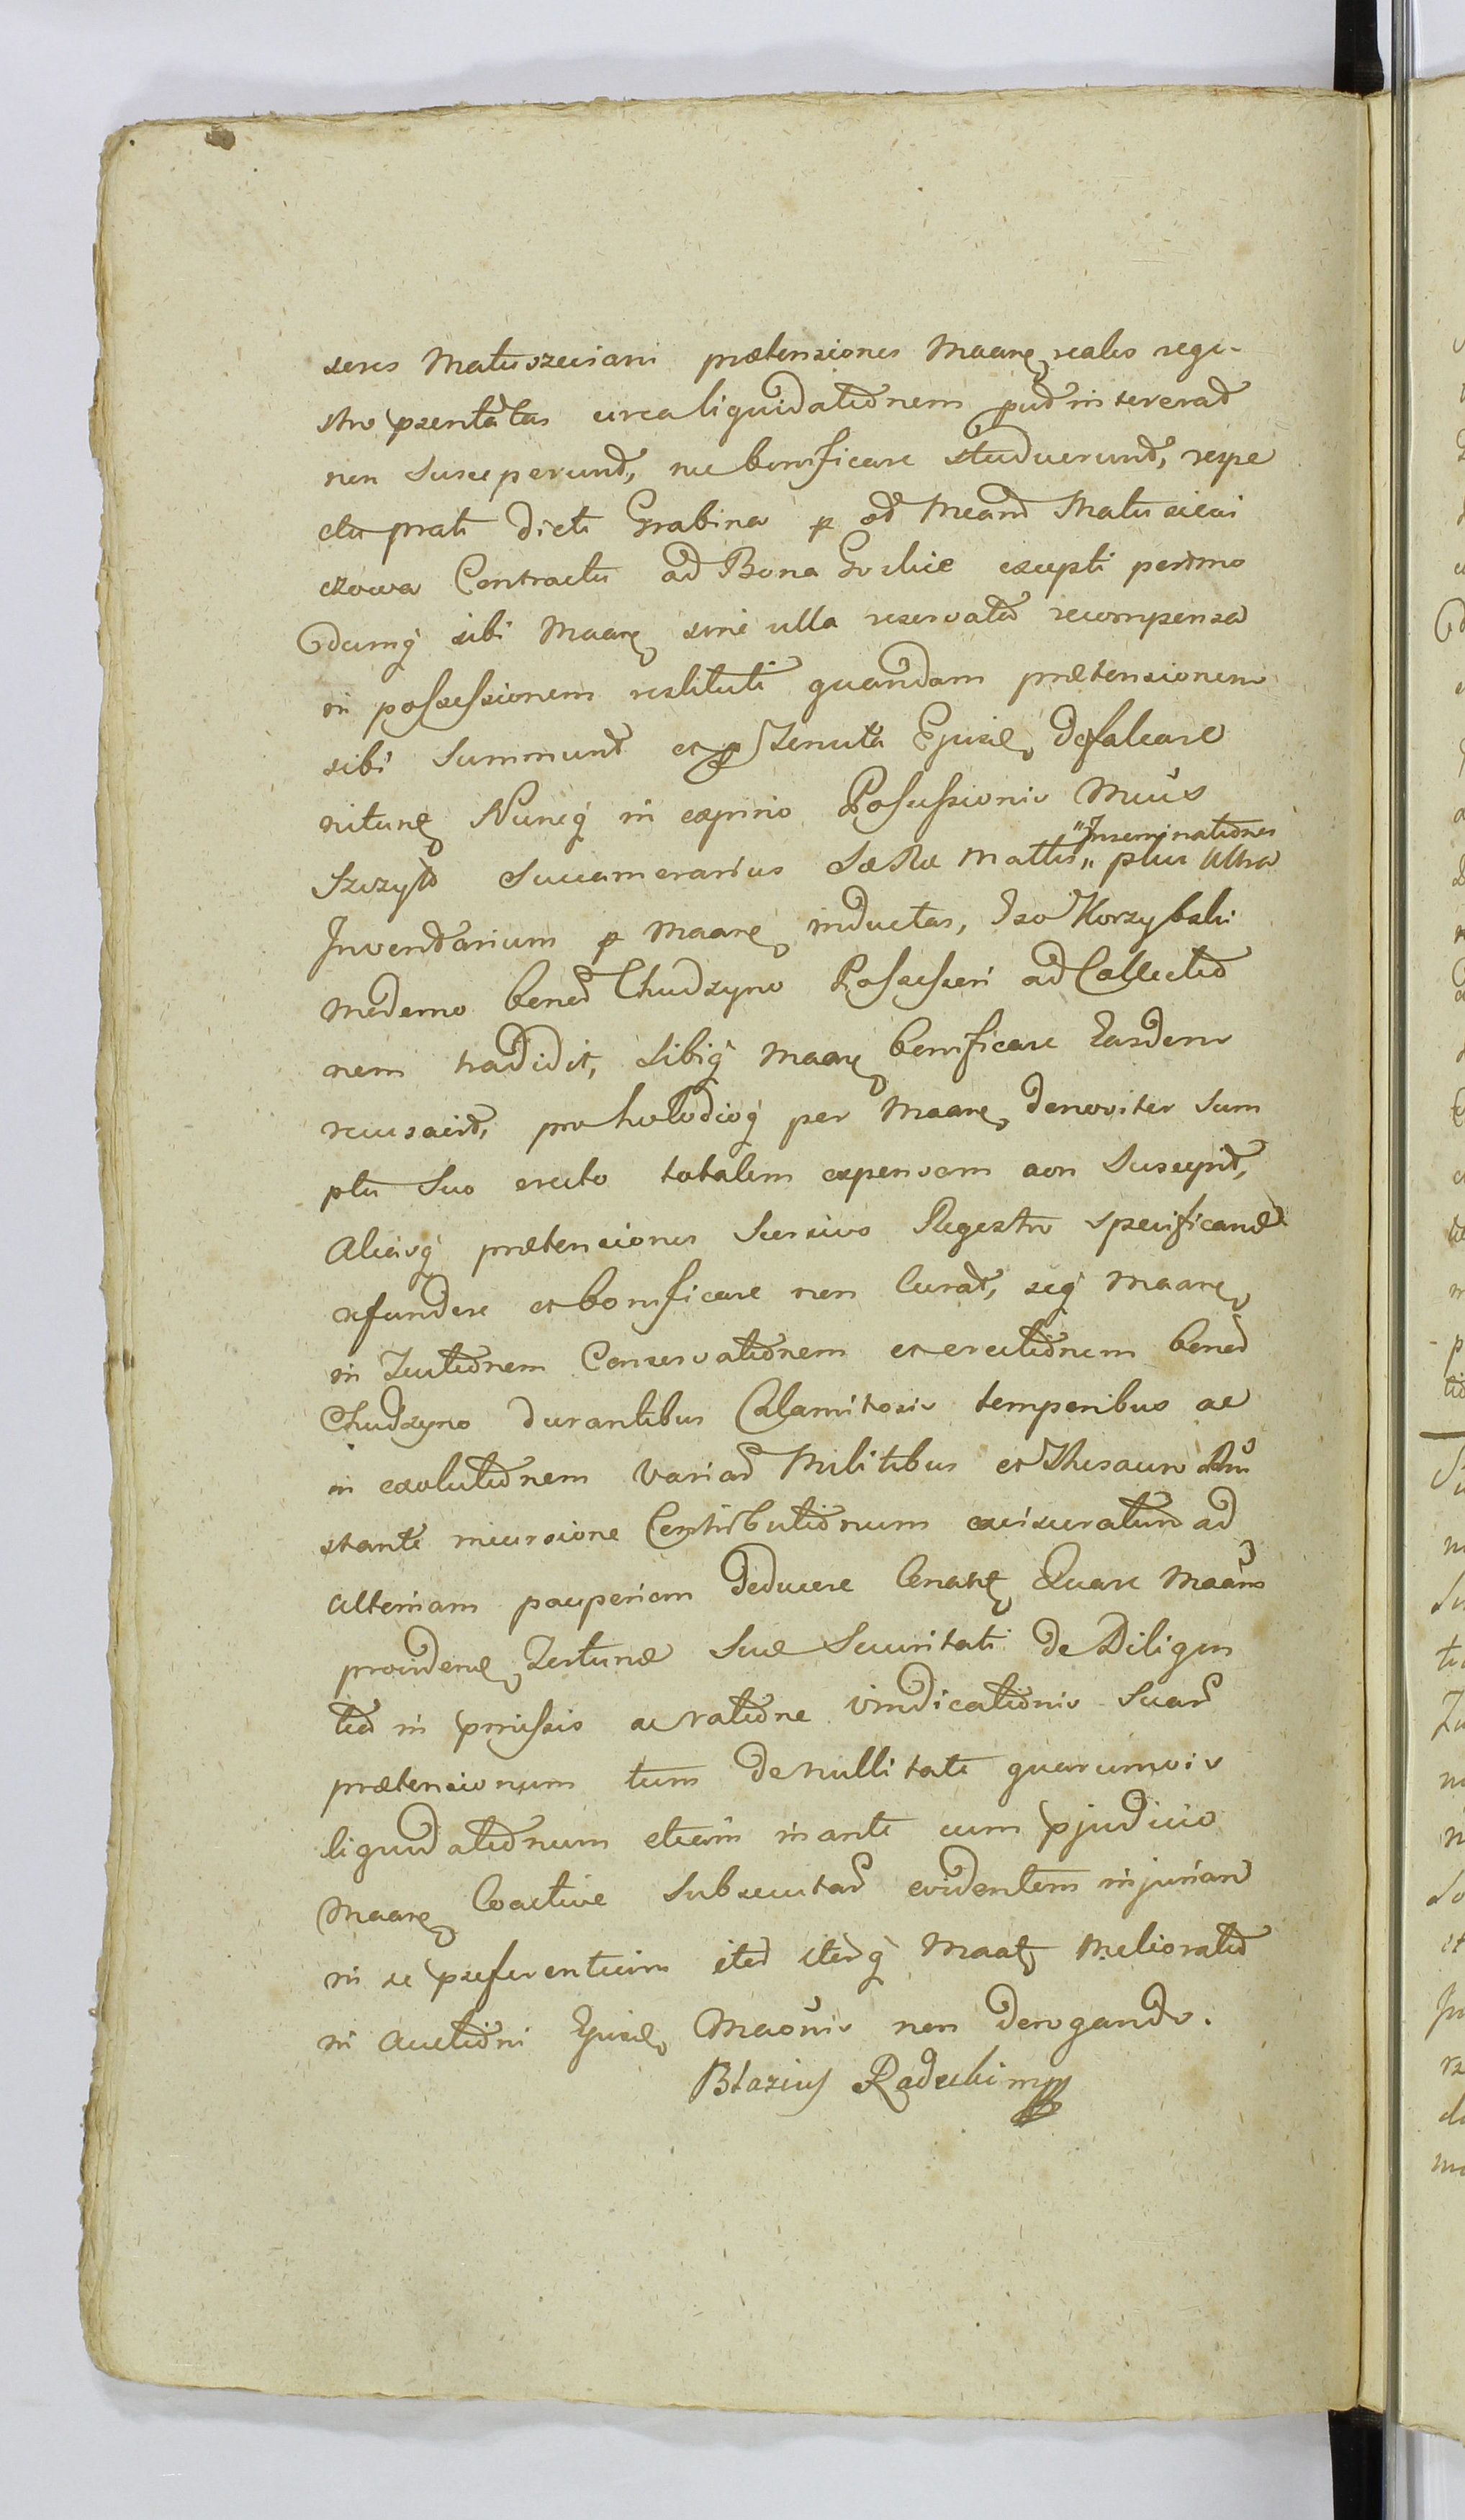 seres Matuszeviani prætensiones Maanę reales regi-
stro pzentatas circa liquidatiõnem pud intererad
non Susceperund, nec bonificare studuerund, respe
ctu prati dicti Grabina p ad Meand Matusievi
czowa Contractu ad Bona Goslice excepti
Ddumq̃ sibi Maanę sine ulla reservatiõ recompensa
in possessionem restituti quandam prætensionem
sibi Summunt et p Tenuta Ejusdę defalcare
nitunt Nuncq̃ in expirio Possessionis Mcus
"Inseminatiõnes
Szczyt Succamerarius SæRæ Mattis " plus Ultra
Inventarium p Maanę inductas, Gso Korzybski
Moderno bonod Chudzyno Possessori ad Collectiõ
nem tradidit, Sibiq̃ Maanę bonificare Easdem
recusavit, pro holodioq̃ per Maanę denoviter Sum
ptu Suo erecto totalem expensam non Suscepit,
Aliasq̃ prætensiones Seorsivo Regestro specificand
refundere et bonificare non Curat, seq̃ Maanę
in Conservatiõnem et erectiõnem bonod
Chudzyno durantibus Calamitosis temporibus ac
in exolutiõnem Variad Militibus et Thesauro
stante incursione Contributiõnum exisceratum ad
Alterinam pauperiem deducere Conatę Quare Maans
providend Fortunæ Suæ Securitati de Diligen
tia in pmissis ac ratiõne Vindicatiõnis Suad
prætensionum tum de nullitate quarumvis
liquidatiõnum etiam in ante cum pjudicio
Maanę Coactive Subsecutad evidentem injuriam
in se pseferentium ited iterq̃ Maatę Melioratiõ
ni Auctiõni Ejusdę Maonis non derogando.
Blazius Radecki mp